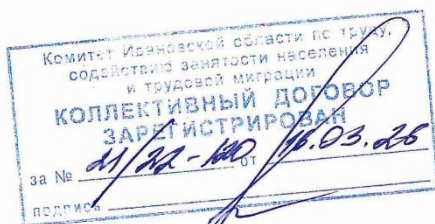 Комитет Ивановской области по труду,
содействию занятости населения
и трудовой миграции
КОЛЛЕКТИВНЫЙ ДОГОВОР
ЗАРЕГИСТРИРОВАН
за № 21/22-120 от 16.03.26
подпись